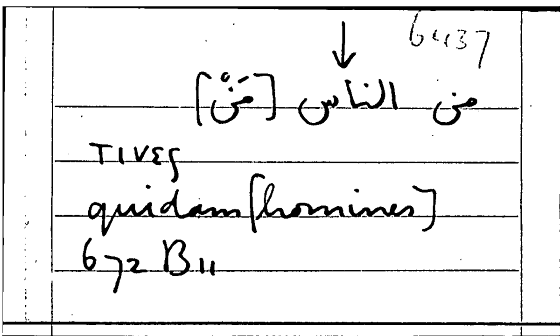 6437
↓
من الناس [مَنْ]
τινες
quidam [homines]
672 B 11